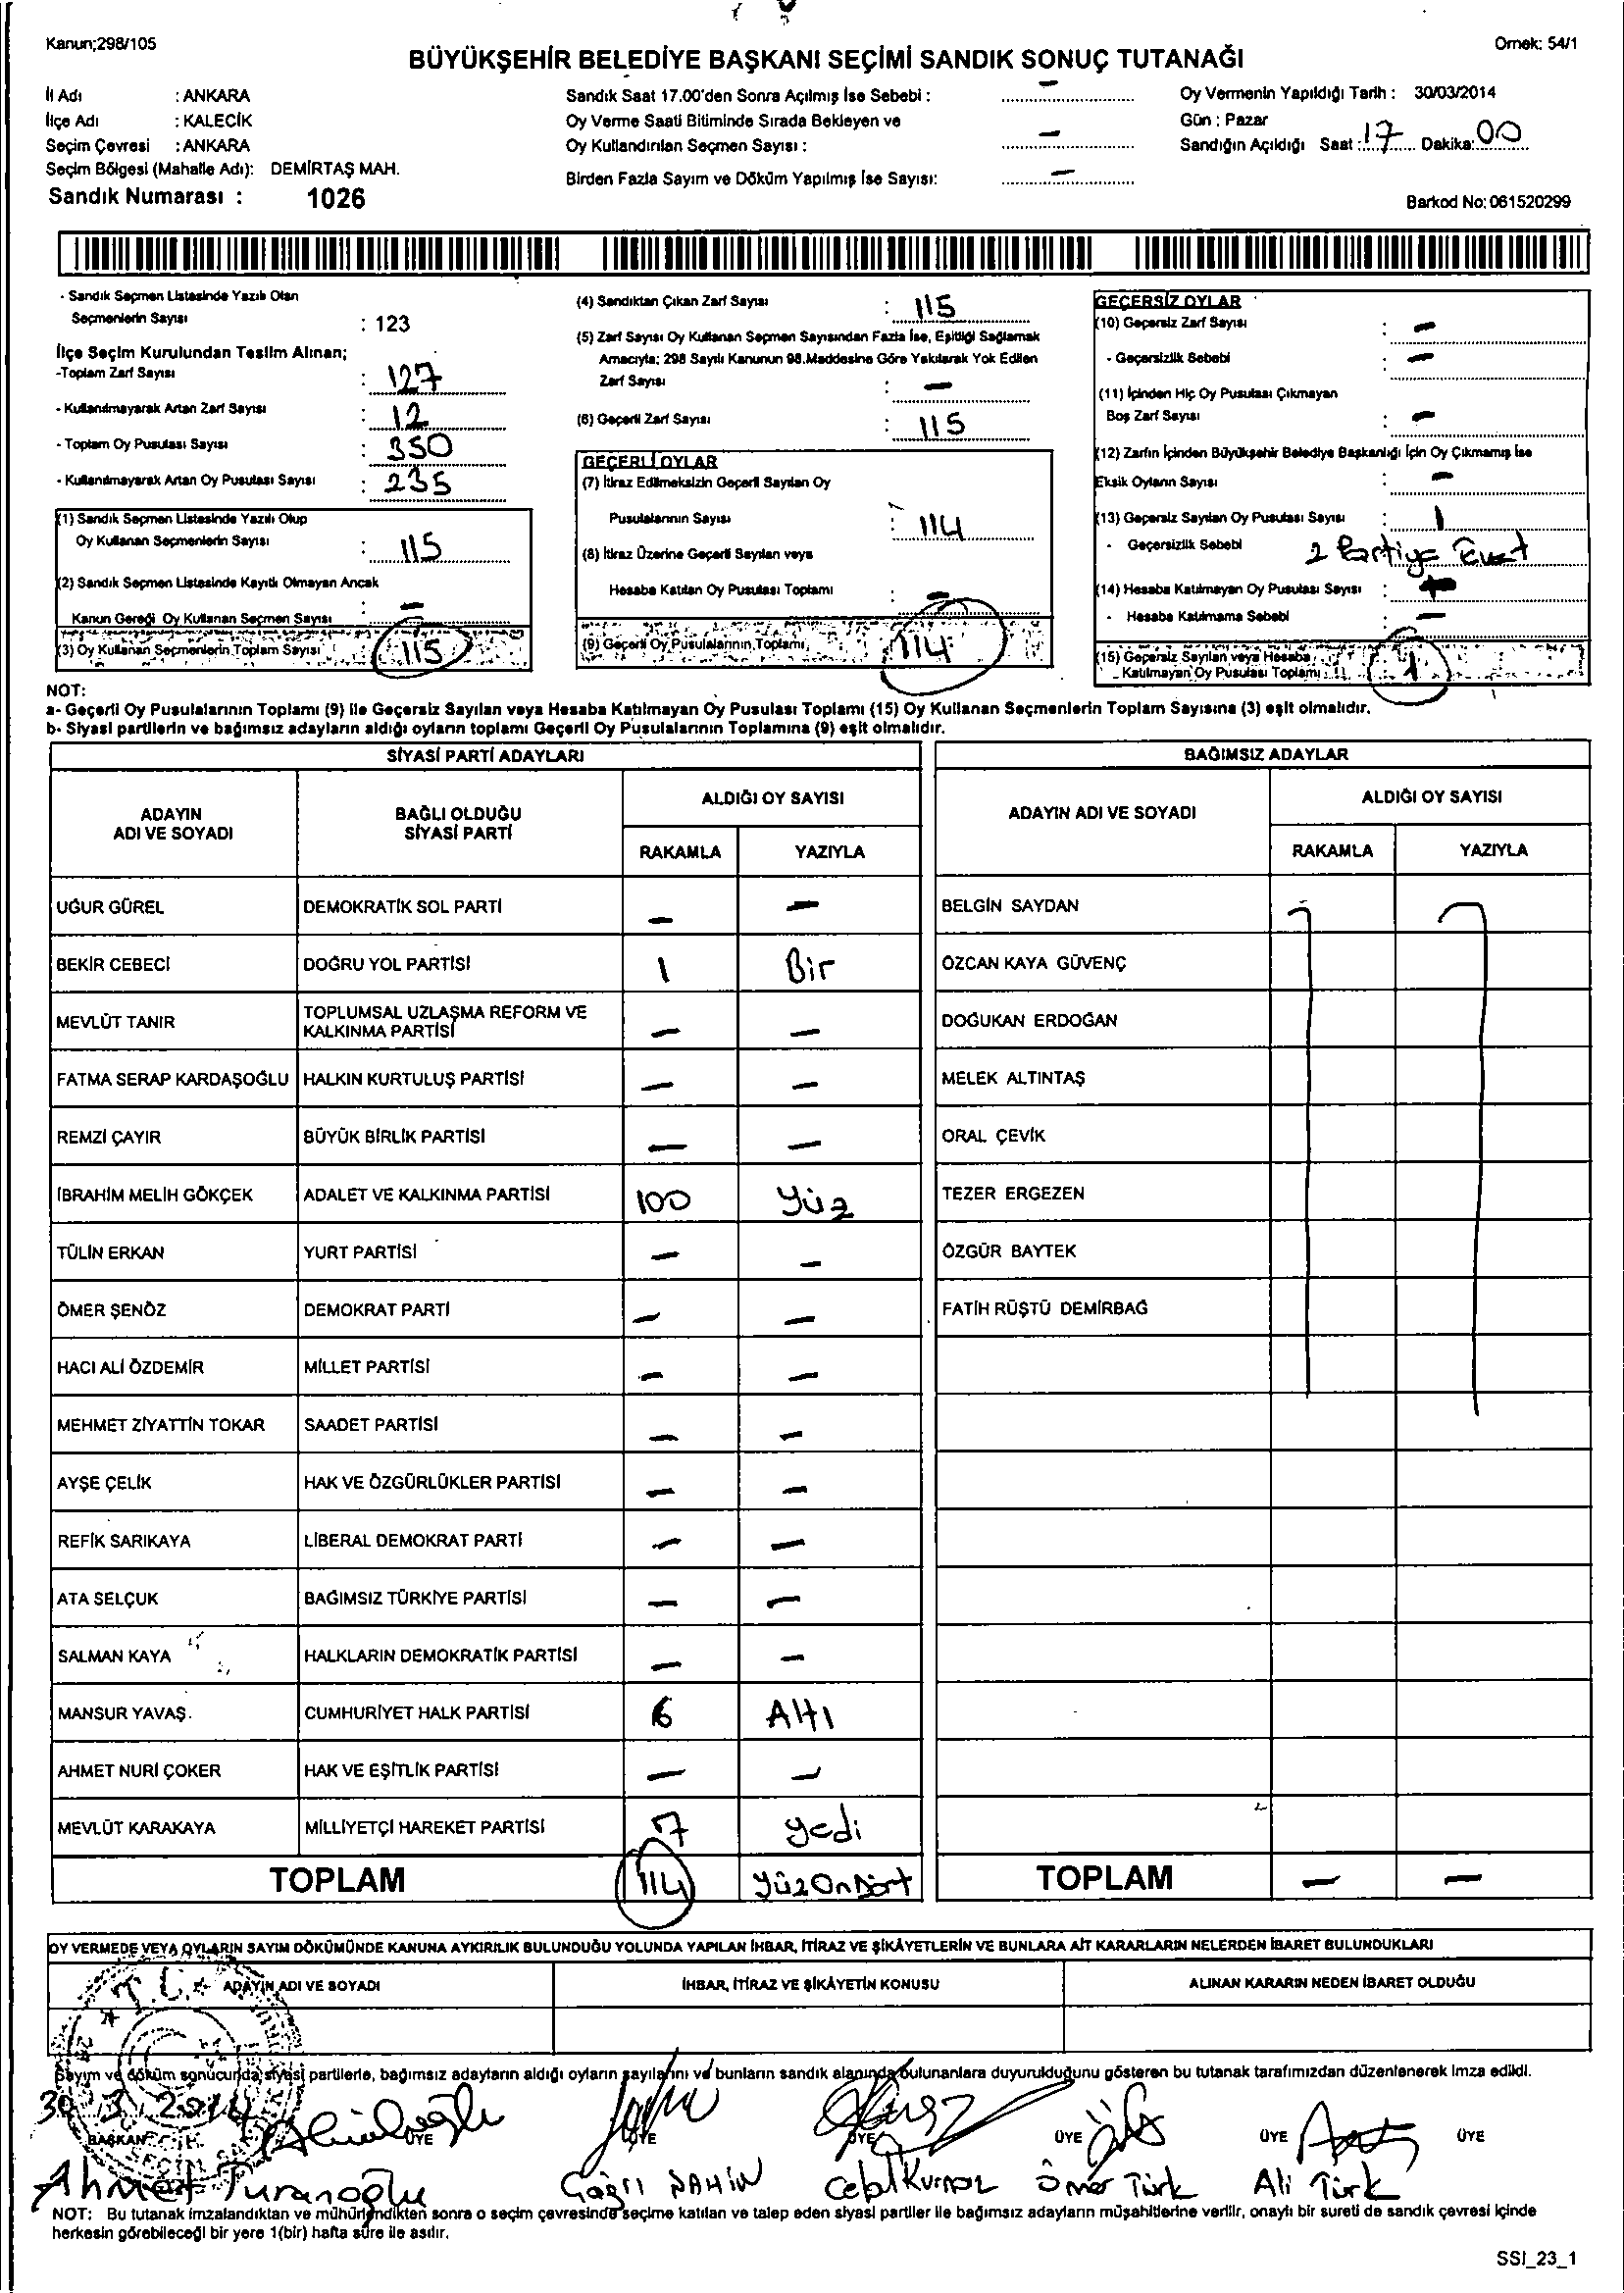 Kanun;298/105
Örnek: 54/1
BÜYÜKŞEHİR BELEDİYE BAŞKANI SEÇİMİ SANDIK SONUÇ TUTANAĞI
İl Adı : ANKARA
İlçe Adı : KALECİK
Seçim Çevresi : ANKARA
Seçim Bölgesi (Mahalle Adı): DEMİRTAŞ MAH.
Sandık Numarası : 1026
Sandık Saat 17.00'den Sonra Açılmış İse Sebebi : –
Oy Verme Saati Bitiminde Sırada Bekleyen ve
Oy Kullandırılan Seçmen Sayısı : –
Birden Fazla Sayım ve Döküm Yapılmış İse Sayısı: –
Oy Vermenin Yapıldığı Tarih : 30/03/2014
Gün : Pazar
Sandığın Açıldığı Saat : 17 Dakika: 00
Barkod No: 061520299
- Sandık Seçmen Listesinde Yazılı Olan
Seçmenlerin Sayısı : 123
İlçe Seçim Kurulundan Teslim Alınan;
-Toplam Zarf Sayısı : 127
- Kullanılmayarak Artan Zarf Sayısı : 12
- Toplam Oy Pusulası Sayısı : 350
- Kullanılmayarak Artan Oy Pusulası Sayısı : 235
(1) Sandık Seçmen Listesinde Yazılı Olup
Oy Kullanan Seçmenlerin Sayısı : 115
(2) Sandık Seçmen Listesinde Kayıtlı Olmayan Ancak
Kanun Gereği Oy Kullanan Seçmen Sayısı : –
(3) Oy Kullanan Seçmenlerin Toplam Sayısı : 115
(4) Sandıktan Çıkan Zarf Sayısı : 115
(5) Zarf Sayısı Oy Kullanan Seçmen Sayısından Fazla İse, Eşitliği Sağlamak
Amacıyla; 298 Sayılı Kanunun 98.Maddesine Göre Yakılarak Yok Edilen
Zarf Sayısı : –
(6) Geçerli Zarf Sayısı : 115
GEÇERLİ OYLAR
(7) İtiraz Edilmeksizin Geçerli Sayılan Oy
Pusulalarının Sayısı : 114
(8) İtiraz Üzerine Geçerli Sayılan veya
Hesaba Katılan Oy Pusulası Toplamı : –
(9) Geçerli Oy Pusulalarının Toplamı : 114
GEÇERSİZ OYLAR
(10) Geçersiz Zarf Sayısı : –
- Geçersizlik Sebebi : –
(11) İçinden Hiç Oy Pusulası Çıkmayan
Boş Zarf Sayısı : –
(12) Zarfın İçinden Büyükşehir Belediye Başkanlığı İçin Oy Çıkmamış İse
Eksik Oyların Sayısı : –
(13) Geçersiz Sayılan Oy Pusulası Sayısı : 1
- Geçersizlik Sebebi 2 Partiye Evet
(14) Hesaba Katılmayan Oy Pusulası Sayısı :
- Hesaba Katılmama Sebebi : –
(15) Geçersiz Sayılan veya Hesaba
Katılmayan Oy Pusulası Toplamı : 1
NOT:
a- Geçerli Oy Pusulalarının Toplamı (9) ile Geçersiz Sayılan veya Hesaba Katılmayan Oy Pusulası Toplamı (15) Oy Kullanan Seçmenlerin Toplam Sayısına (3) eşit olmalıdır.
b- Siyasi partilerin ve bağımsız adayların aldığı oyların toplamı Geçerli Oy Pusulalarının Toplamına (9) eşit olmalıdır.
SİYASİ PARTİ ADAYLARI
ADAYIN ADI VE SOYADI BAĞLI OLDUĞU SİYASİ PARTİ ALDIĞI OY SAYISI
RAKAMLA YAZIYLA
UĞUR GÜREL DEMOKRATİK SOL PARTİ – –
BEKİR CEBECİ DOĞRU YOL PARTİSİ 1 Bir
MEVLÜT TANIR TOPLUMSAL UZLAŞMA REFORM VE KALKINMA PARTİSİ – –
FATMA SERAP KARDAŞOĞLU HALKIN KURTULUŞ PARTİSİ – –
REMZİ ÇAYIR BÜYÜK BİRLİK PARTİSİ – –
İBRAHİM MELİH GÖKÇEK ADALET VE KALKINMA PARTİSİ 100 Yüz
TÜLİN ERKAN YURT PARTİSİ – –
ÖMER ŞENÖZ DEMOKRAT PARTİ – –
HACI ALİ ÖZDEMİR MİLLET PARTİSİ – –
MEHMET ZİYATTİN TOKAR SAADET PARTİSİ – –
AYŞE ÇELİK HAK VE ÖZGÜRLÜKLER PARTİSİ – –
REFİK SARIKAYA LİBERAL DEMOKRAT PARTİ – –
ATA SELÇUK BAĞIMSIZ TÜRKİYE PARTİSİ – –
SALMAN KAYA HALKLARIN DEMOKRATİK PARTİSİ – –
MANSUR YAVAŞ CUMHURİYET HALK PARTİSİ 6 Altı
AHMET NURİ ÇOKER HAK VE EŞİTLİK PARTİSİ – –
MEVLÜT KARAKAYA MİLLİYETÇİ HAREKET PARTİSİ 7 Yedi
TOPLAM 114 YüzOnDört
BAĞIMSIZ ADAYLAR
ADAYIN ADI VE SOYADI ALDIĞI OY SAYISI
RAKAMLA YAZIYLA
BELGİN SAYDAN
ÖZCAN KAYA GÜVENÇ
DOĞUKAN ERDOĞAN
MELEK ALTINTAŞ
ORAL ÇEVİK
TEZER ERGEZEN
ÖZGÜR BAYTEK
FATİH RÜŞTÜ DEMİRBAĞ
TOPLAM – –
OY VERMEDE VEYA OYLARIN SAYIM DÖKÜMÜNDE KANUNA AYKIRILIK BULUNDUĞU YOLUNDA YAPILAN İHBAR, İTİRAZ VE ŞİKÂYETLERİN VE BUNLARA AİT KARARLARIN NELERDEN İBARET BULUNDUKLARI
ADAYIN ADI VE SOYADI İHBAR, İTİRAZ VE ŞİKÂYETİN KONUSU ALINAN KARARIN NEDEN İBARET OLDUĞU
T.C.
Sayım ve döküm sonucunda, siyasi partilerle, bağımsız adayların aldığı oyların sayılarını ve bunların sandık alanında bulunanlara duyurulduğunu gösteren bu tutanak tarafımızdan düzenlenerek imza edildi.
30 3 2014
BAŞKAN ÜYE ÜYE ÜYE ÜYE ÜYE ÜYE
Ahmet Turanoğlu Çağrı ŞAHİN Celal Kurnaz Ömer Türk Ali Türk
NOT: Bu tutanak imzalandıktan ve mühürlendikten sonra o seçim çevresinde seçime katılan ve talep eden siyasi partiler ile bağımsız adayların müşahitlerine verilir, onaylı bir sureti de sandık çevresi içinde
herkesin görebileceği bir yere 1(bir) hafta süre ile asılır.
SSI_23_1